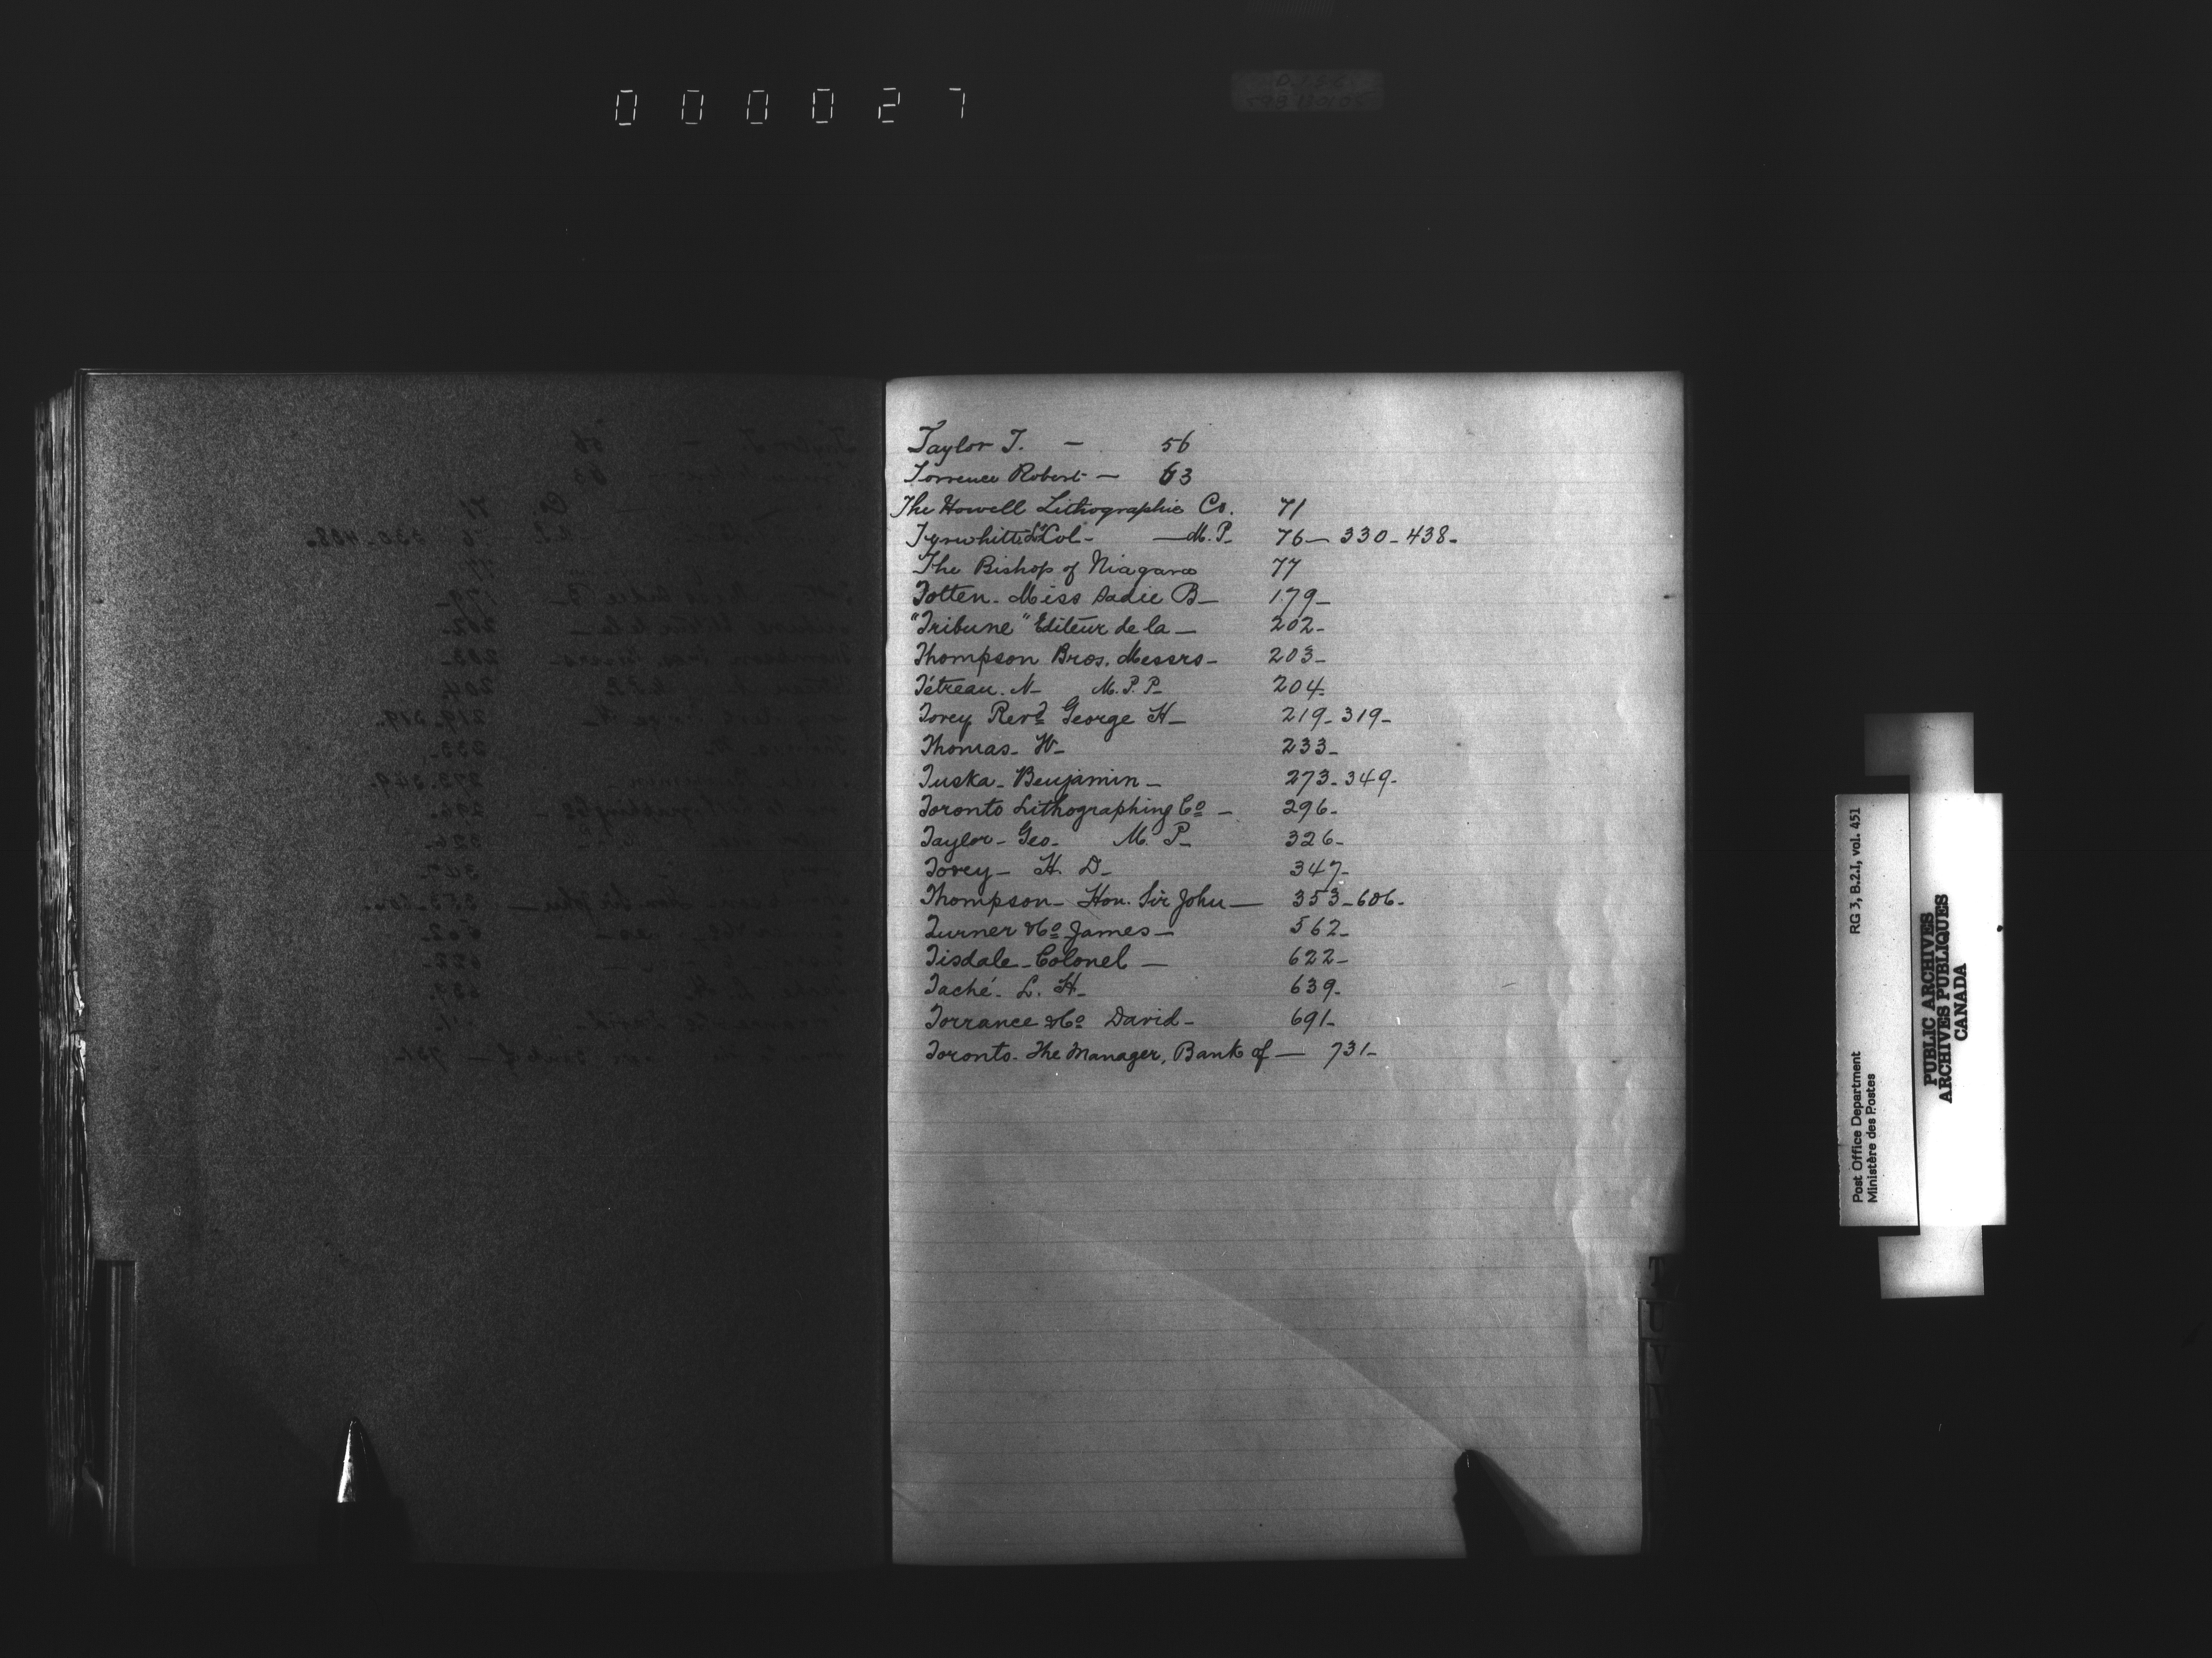 000027
Taylor T. - 56
Torrence Robert - 63
The Howell Lithographic Co. 71
Tyrwhitt Lt Col - - M.P. 76 - 330 - 438 -
The Bishop of Niagara 77
Totten - Miss Sadie B - 179 -
"Tribune" Editeur de la - 202 -
Thompson Bros. Messrs - 203 -
Tétreau. N - M.P.P. 204 -
Tovey Revd George H - 219 - 319 -
Thomas - W - 233 -
Tuska - Benjamin - 273 - 349 -
Toronto Lithographing Co - 296 -
Taylor - Geo - M.P - 326 -
Tovey - H. D - 347 -
Thompson - Hon. Sir John - 353 - 606 -
Turner & Co James - 562 -
Tisdale - Colonel - 622 -
Taché - L. H - 639 -
Torrance & Co David - 691 -
Toronto - The Manager, Bank of - 731 -
T
U
V
RG 3, B.2.1, vol. 451
Post Office Department
Ministère des Postes
PUBLIC ARCHIVES
ARCHIVES PUBLIQUES
CANADA